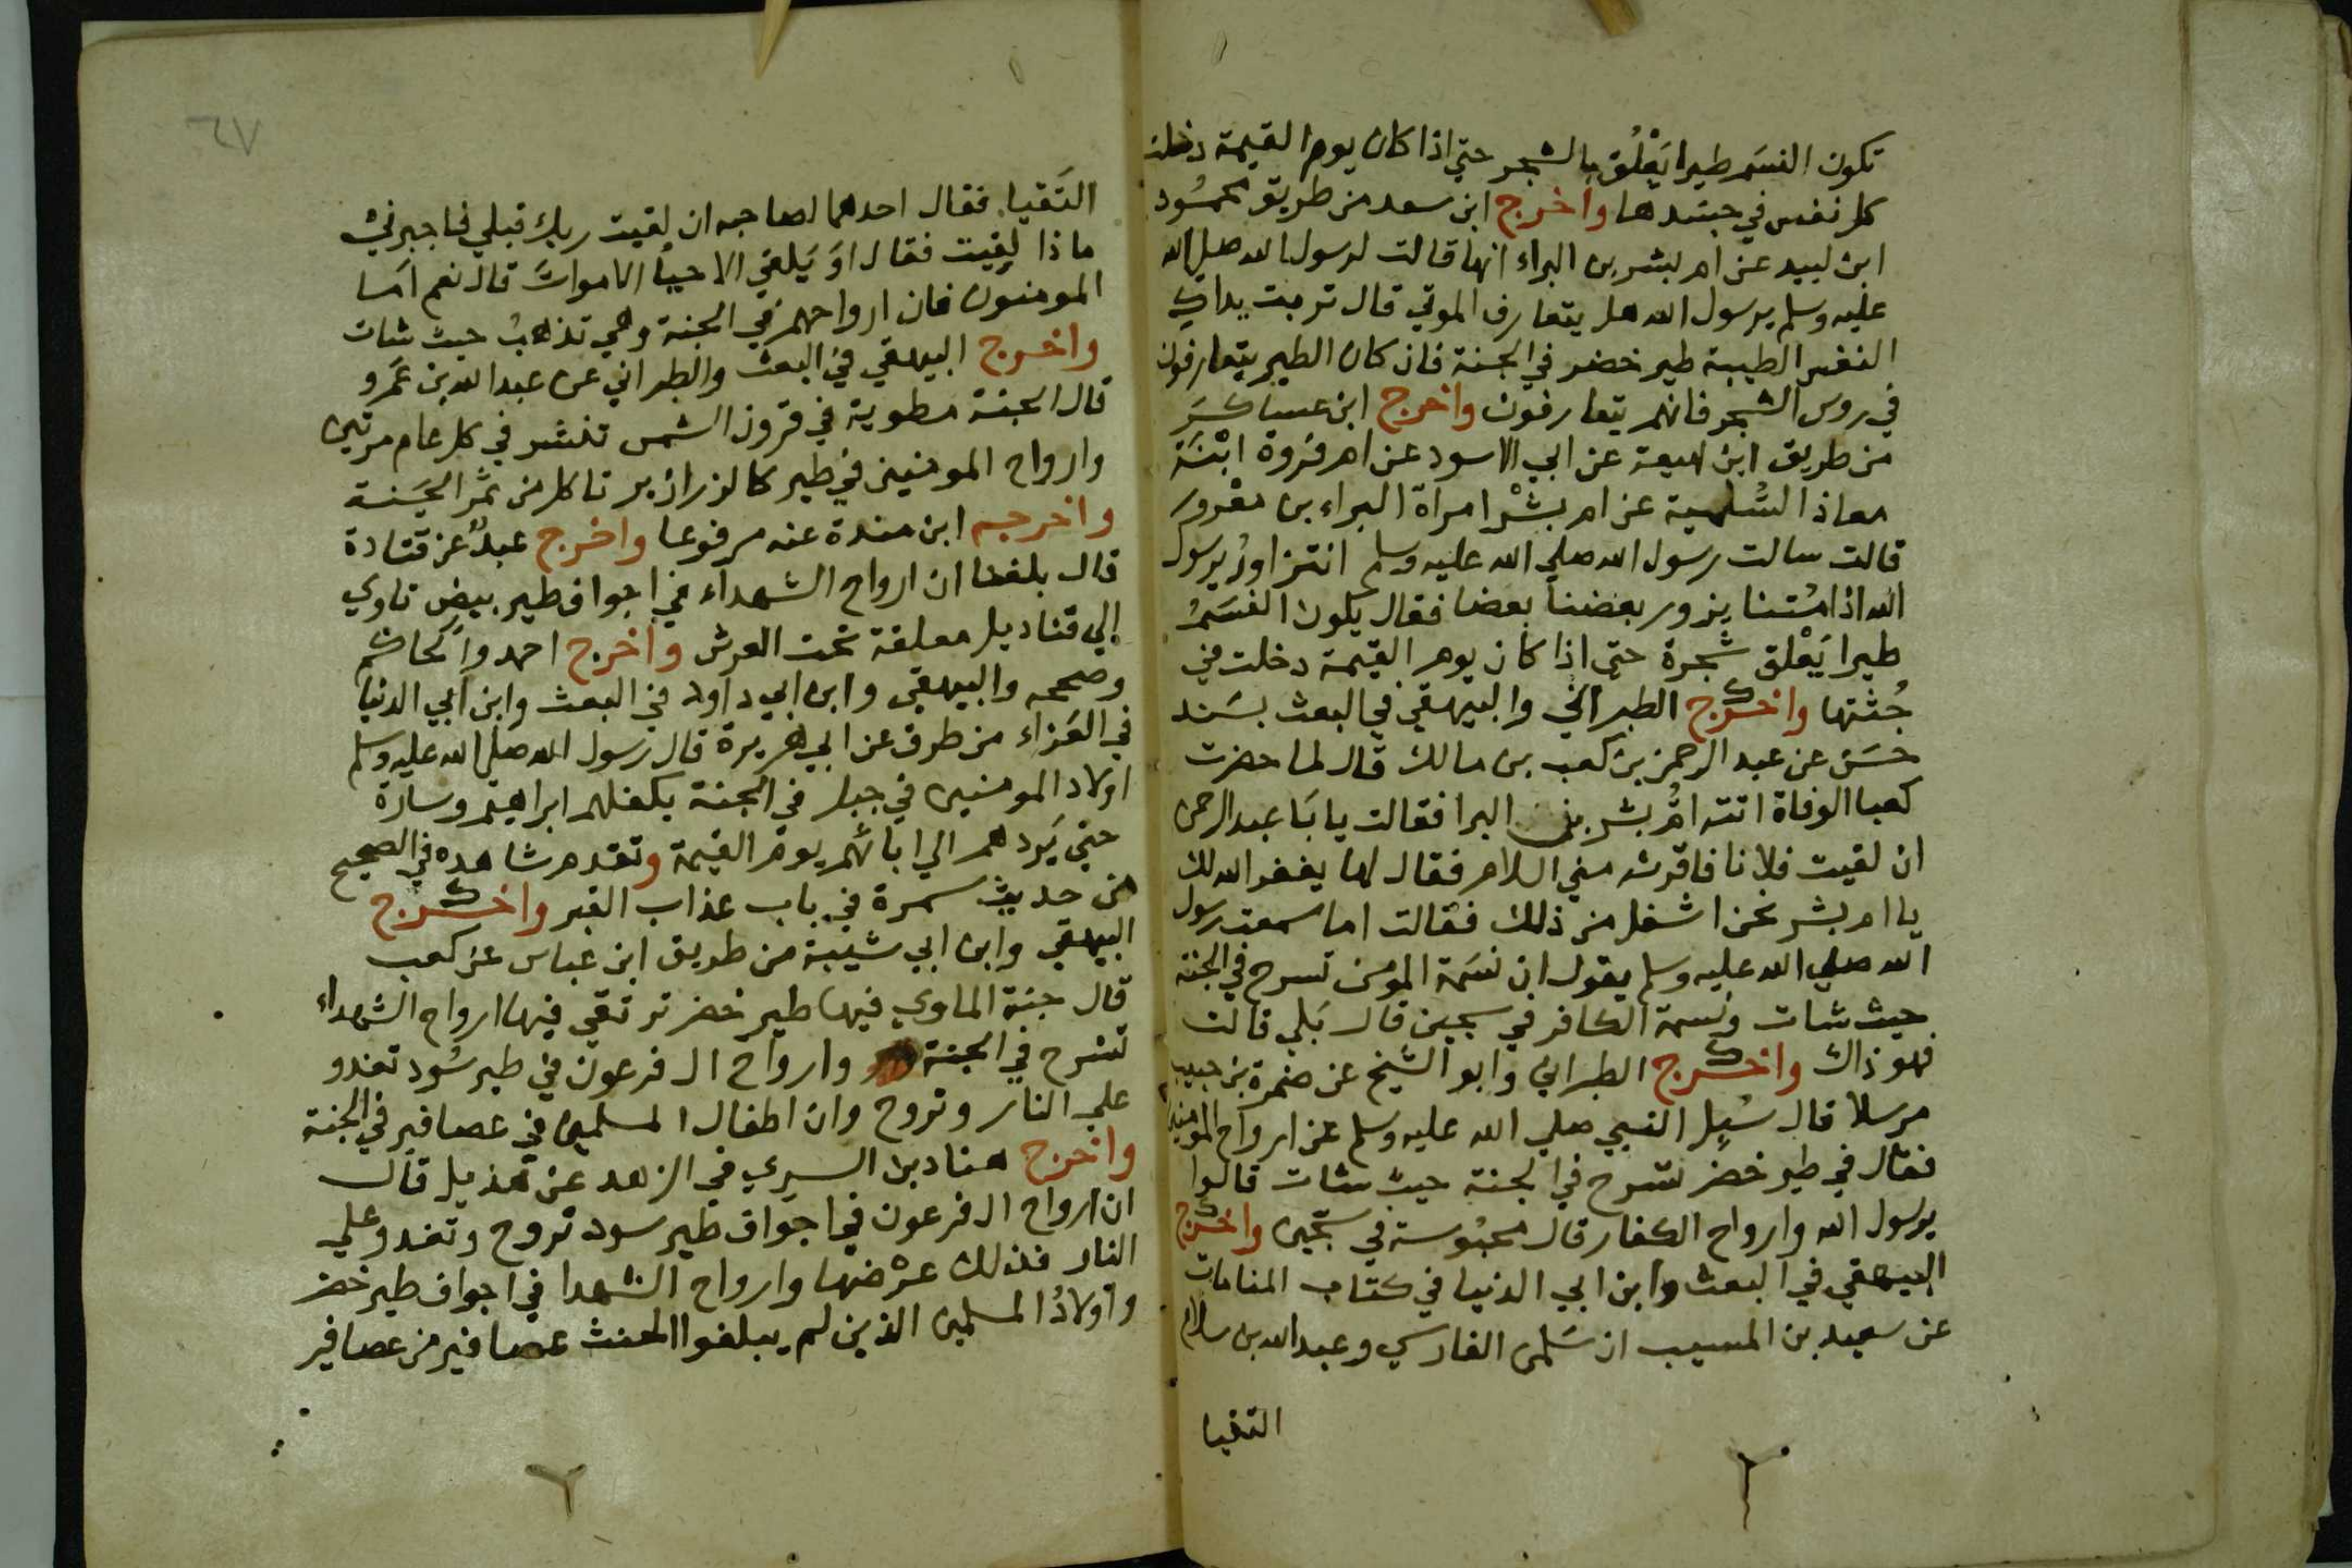 تكون النسم طيرا يَعْلُق بالشجر حتي اذا كان يوم القيمة دخلت
كل نفس في جسدها واخرج ابن سعد من طريق محمُود
ابن لبيد عن ام بشر بن البراء انها قالت لرسول الله صلي الله
عليه وسلم يرسول الله هل يتعارف الموتي قال تربت يداكِ
النفس الطيبة طير خضر في الجنة فان كان الطير يتعارفون
في روس الشجر فانهم يتعارفون واخرج ابن عساكر
من طريق ابن لهيعة عن ابي الاسود عن ام فروة ابْنَة
معاذ السُّلمية عن ام بشْر امراة البراء بن معْرور
قالت سالت رسول الله صلي الله عليه وسلم انتزاورُ يرسول
الله اذا مُتنا يزور بعضنا بعضا فقال يكون النسَمُ
طيرا يَعْلق شجرة حتي اذا كان يوم القيمة دخلت في
جُثتها واخرج الطبراني والبيهقي في البعث بسَند
حسَن عن عبد الرحمن بن كعب بن مالك قال لما حضرت
كعبا الوفاة اتته امُّ بشر بنت البرا فقالت يابَا عبد الرحمن
ان لقيت فلانا فاقرئه مني السلام فقال لها يغفر الله لك
يا ام بشر نحن اشغل من ذلك فقالت اما سمعت رسول
الله صلي الله عليه وسلم يقول ان نسَمة المومن تسرح في الجنة
حيث شات ونسمة الكافر في سجين قال بَلي قالت
فهو ذاك واخرج الطبراني وابو الشيخ عن ضمرة بن حبيب
مرسلا قال سُيِل النبي صلي الله عليه وسلم عن ارواح المومنين
فقال في طير خضر تسرح في الجنة حيث شات قالوا
يرسول الله وارواح الكفار قال محبُوسة في سجين واخرج
البيهقي في البعث وابن ابي الدنيا في كتاب المنامات
عن سعيد بن المسيب ان سَلمن الفارسي وعبد الله بن سلام
التقيا
٦٧
التَقيا فقال احدهما لصاحبه ان لقيت ربك قبلي فاخبرني
ماذا لقيت فقال اوَ يَلقي الاحيا الامواتَ قال نعم امَا
المومنون فان ارواحهم في الجنة وهي تذهبُ حيث شات
واخرج البيهقي في البعث والطبراني عن عبد الله بن عَمرو
قال الجنة مطوية في قرون الشمس تنشر في كل عام مرتين
وارواح المومنين في طير كالزرازير تاكل من ثمَر الجَنة
واخرجه ابن مندة عنه مرفوعا واخرج عبدٌ عن قتادة
قال بلغنا ان ارواح الشهداء في اجواف طير بيض تاوي
الي قناديل معلقة تحت العرش واخرج احمد والحاكم
وصححه والبيهقي وابن ابي داود في البعث وابن ابي الدنيا
في العَزاء من طرق عن ابي هريرة قال رسول الله صلي الله عليه وسلم
اولاد المومنين في جبل في الجنة يكفلهم ابراهيم وسارة
حتي يَردهم الي ابائهم يوم القيمة وتقدم شاهده في الصحيح
من حديث سمرة في باب عذاب القبر واخرج
البيهقي وابن ابي شيبة من طريق ابن عباس عن كعب
قال جنة الماوي فيها طير خضر ترتقي فيها ارواح الشهداء
تسرح في الجنة وارواح ال فرعون في طير سُود تغدو
علي النار وتروح وان اطفال المسلمين في عصافير في الجنة
واخرج هناد بن السري في الزهد عن هذيل قال
ان ارواح ال فرعون في اجواف طير سود تروح وتغدو علي
النار فذلك عرْضها وارواح الشهدا في اجواف طير خضر
واولادُ المسلمين الذين لم يبلغوا الحنث عصافير من عصافير